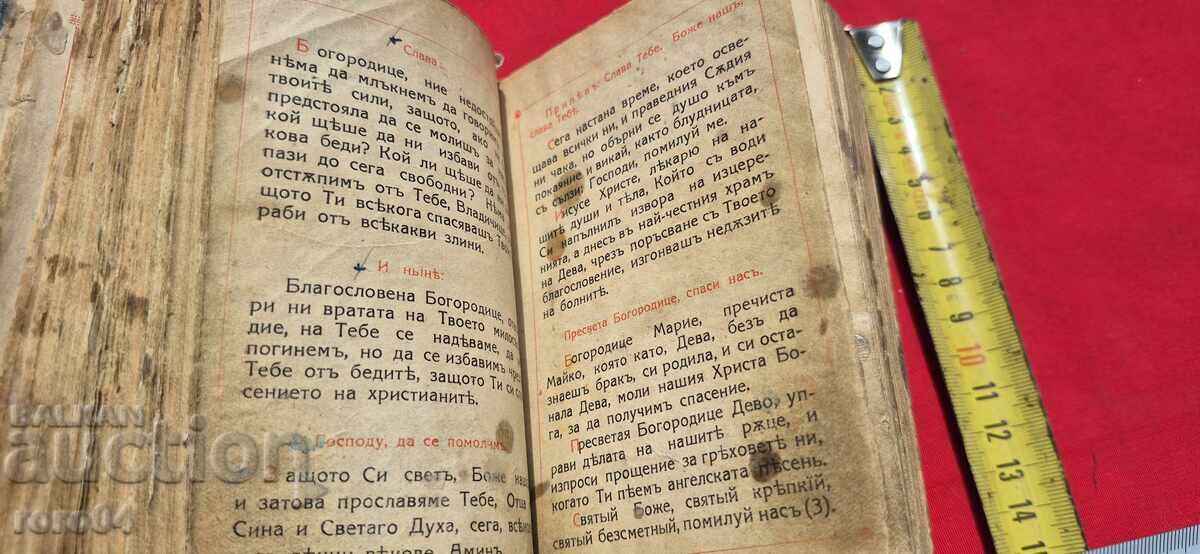 Слава:
Богородице, ние недосто
нѣма да млъкнемъ да говорим
твоитѣ сили, защото, ако
предстояла да се молишъ за
кой щѣше да ни избави отъ
кова беди? Кой ли щѣше да
пази до сега свободни? Нѣма
отстѫпимъ отъ Тебе, Владичице
щото Ти всѣкога спасявашъ Тво
раби отъ всѣкакви злини.
И нынѣ:
Благословена Богородице, отво
ри ни вратата на Твоето милосъ
дие, на Тебе се надѣваме, да
погинемъ, но да се избавимъ чрез
Тебе отъ бедитѣ, защото Ти си спа
сението на християнитѣ.
Господу, да се помолимъ
ащото Си светъ, Боже наш
и затова прославяме Тебе, Отца
Сина и Светаго Духа, сега, всѣк
вѣкове. Аминъ.
Припѣвъ: Слава Тебе, Боже нашъ,
слава Тебѣ.
Сега настана време, което осве-
щава всички ни, и праведния Сѫдия
ни чака, но обърни се душо къмъ
покаяние и викай, както блудницата,
съ сълзи: Господи, помилуй ме.
Иисусе Христе, лѣкарю на на-
шитѣ души и тѣла, Който съ води
Си напълнилъ извора на изцере-
нията, а днесъ въ най-честния храмъ
на Дева, чрезъ поръсване съ Твоето
благословение, изгонвашъ недѫзитѣ
на болнитѣ.
Пресвета Богородице, спаси насъ.
Богородице Марие, пречиста
Майко, която като, Дева, безъ да
знаешъ бракъ, си родила, и си оста-
нала Дева, моли нашия Христа Бо-
га, за да получимъ спасение.
Пресветая Богородице Дево, упр-
ви дѣлата на нашитѣ рѫце, и
изпроси прощение за грѣховетѣ ни,
когато Ти пѣемъ ангелската пѣсень.
Святый Боже, святый крѣпкій,
святый безсметный, помилуй насъ (3).
2
3
4
5
6
7
8
9
10
11
12
13
14
BALKAN
auction
roro04